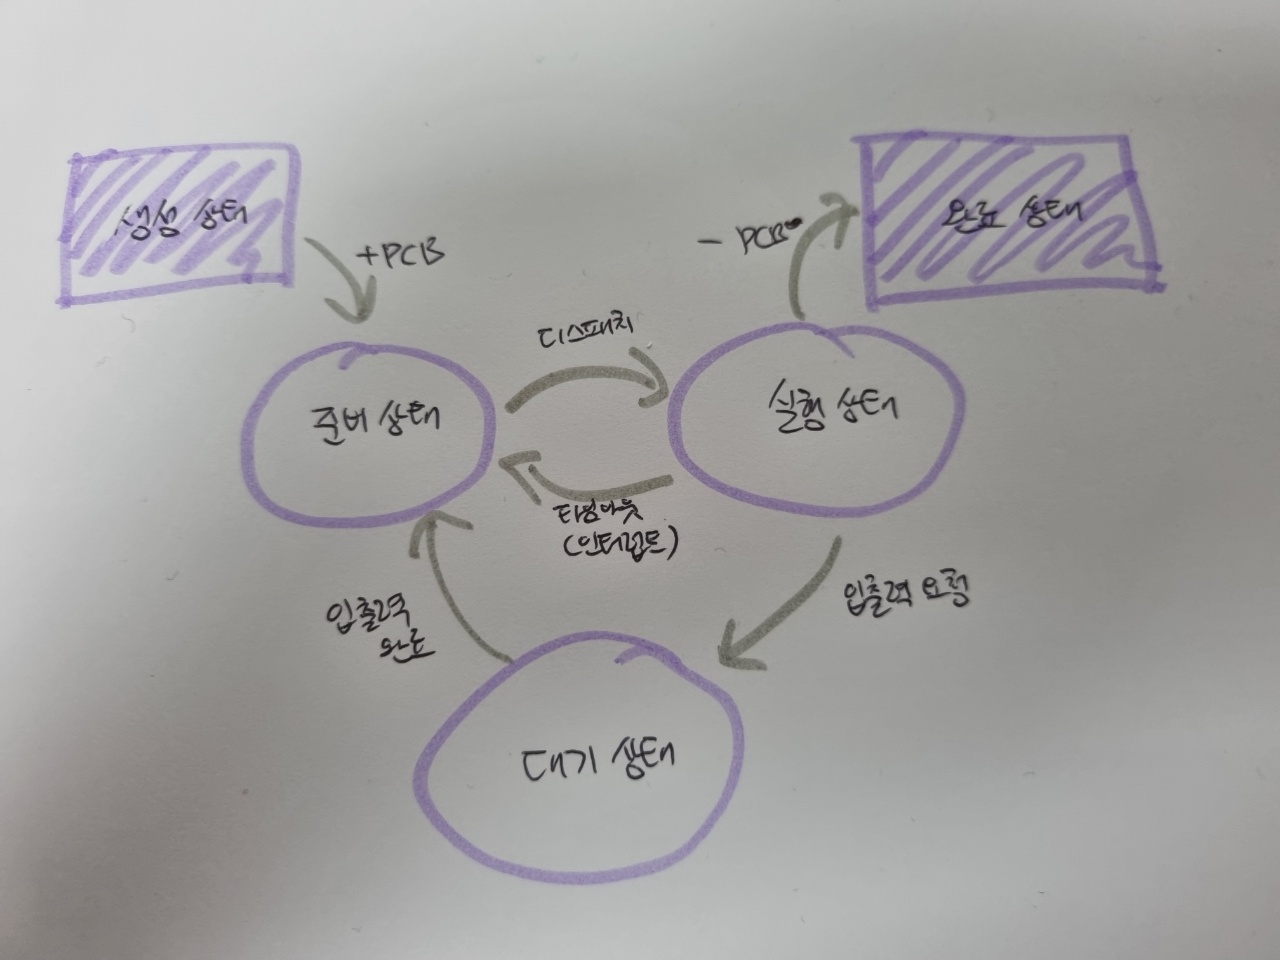 생성 상태
+PCB
- PCB
완료 상태
디스패치
준비 상태
실행 상태
타임아웃
(인터럽트)
입출력
완료
입출력 요청
대기 상태